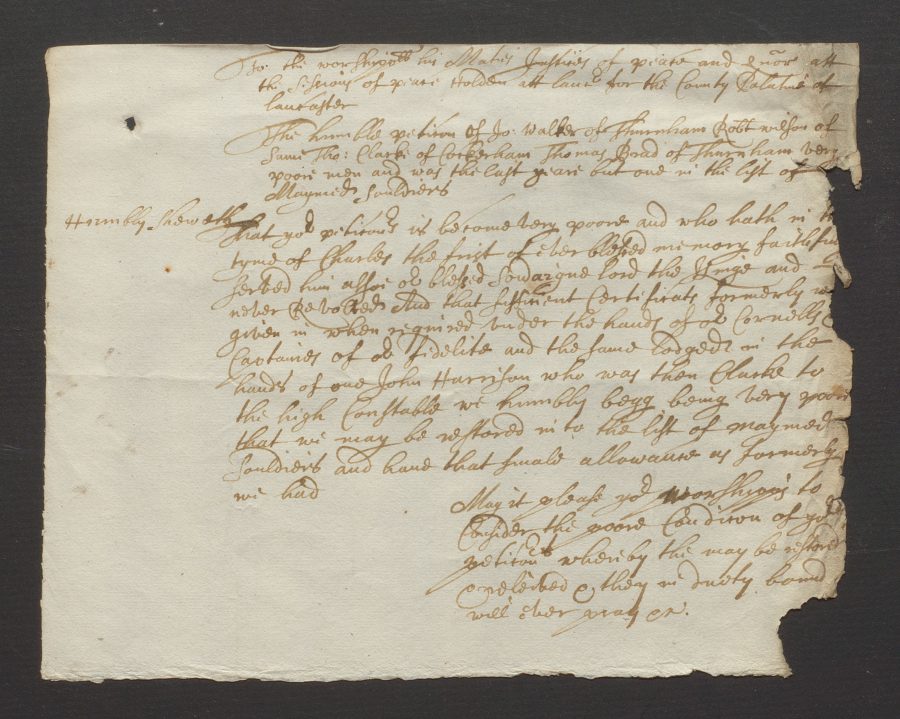 To the worshipll his Maties Justices of peace and Quor att
the Sessions of peace Holden att Lanc for the County Palatine of
Lancaster
The humble peticon of Jo: Walker of Thurnham Robt wilson of
Same Tho: Clarke of Cockerham Thomas Brad of Thurnham very
poore men and was the last yeare but one in the list of
Maymed Souldiers
Humbly Sheweth
That yor peticonrs is become very poore and who hath in
tyme of Charles the first of ever blessed memory faithfu
served him allsoe or blessed Soveraigne lord the Kinge and
never Revolted And that sufficient Certificats formerly
given in when required under the hands of or Cornells
Captaines of or fidelite and the same lodged in the
hands of one John Harrison who was then Clarke to
the high Constable we humbly begg being very poore
that we may be restored into the list of maymed
Souldiers and have that smale allowance as formerly
we had
May it please yor worshipps to
Consider the poore Condicon of yor
peticonrs whereby the may be restored
& releived & they in duety bound
will ever pray &c.